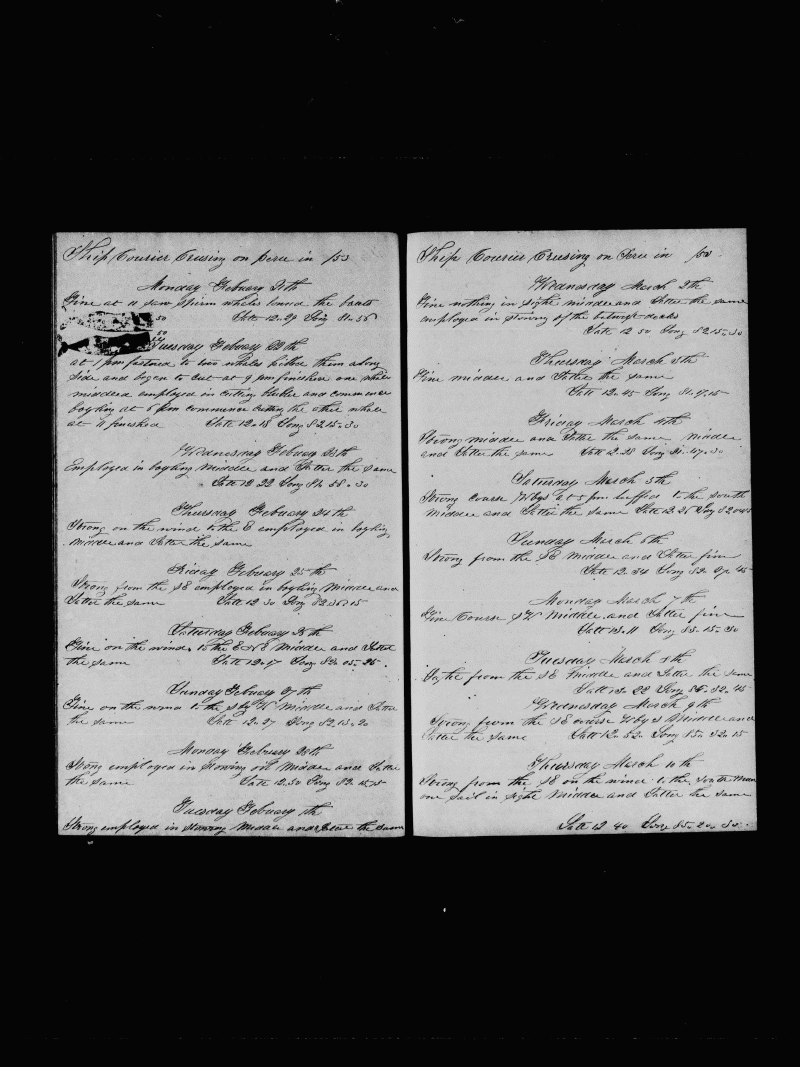 Ship Courier Crusing on Peru in /53
Monday Febuary 21th
Fine at 11 saw Sperm whales lowed the boats
50 Latt 12.29 Long 81.56
50
Tuesday Febuary 22th
at 1 pm fastned to two whales killed them along
side and began to cut at 9 pm finishin one whale
middle employed in cuting bluber and commence
boyling at 6 pm commence cutting the other whale
at 11 finished Latt 12.18 Long 82.15.30
Wednesday Febuary 23th
Employed in boyling Middle and Latter the Same
Latt 12 22 Long 81.58.30
Thursday Febuary 24th
Strong on the wind to the E employed in boyling
Middle and Latter the same
Friday Febuary 25th
Strong from the SE employed in boyling Middle and
Latter the same Latt 12 30 Long 82.35.15
Satturday Febuary 26th
Fine on the wind to the ENE Middle and Latter
the same Latt 12.17 Long 82.05.25
Sunday Febuary 27th
Fine on the wind to the S by W Middle and Latter
the same Latt 12.27 Long 82.13.20
Monday Febuary 28th
Strong employed in stowing oil Middle and Latter
the same Latt 12.30 Long 82.
Tuesday Febuary th
Strong employed in stowing Middle and Latter the same
Ship Courier Crusing on Peru in /53
Wednesday March 2th
Fine nothing in sight middle and Latter the same
employed in stowing of the betwixt decks
Latt 12 50 Long 82.15.30
Thursday March 3th
Fine middle and Latter the same
Latt 12.45 Long 81.47.15
Friday March 4th
Strong middle and Latter the same middle
and Latter the same Latt 12.28 Long 81.47.30
Satturday March 5th
Strong course W by S at 5 pm luffed to the South
Middle and Latter the same Latt 12.26 Long 82
Sunday March 6th
Strong from the SE Middle and Latter fine
Latt 12.34 Long 82. 45
Monday March 7th
Fine Course SW Middle and Latter fine
Latt 13.11 Long 83.15.30
Tuesday March 8th
from the SE Middle and Latter the same
Latt 13.22 Long 32.45
Wednesday March 9th
Strong from the SE course W by S Middle and
Latter the same Latt 12.52 Long 32.15
Thursday March 10th
Strong from the SE on the wind to the South
one Sail in sight Middle and Latter the same
Latt 12 40 Long 85.20.30